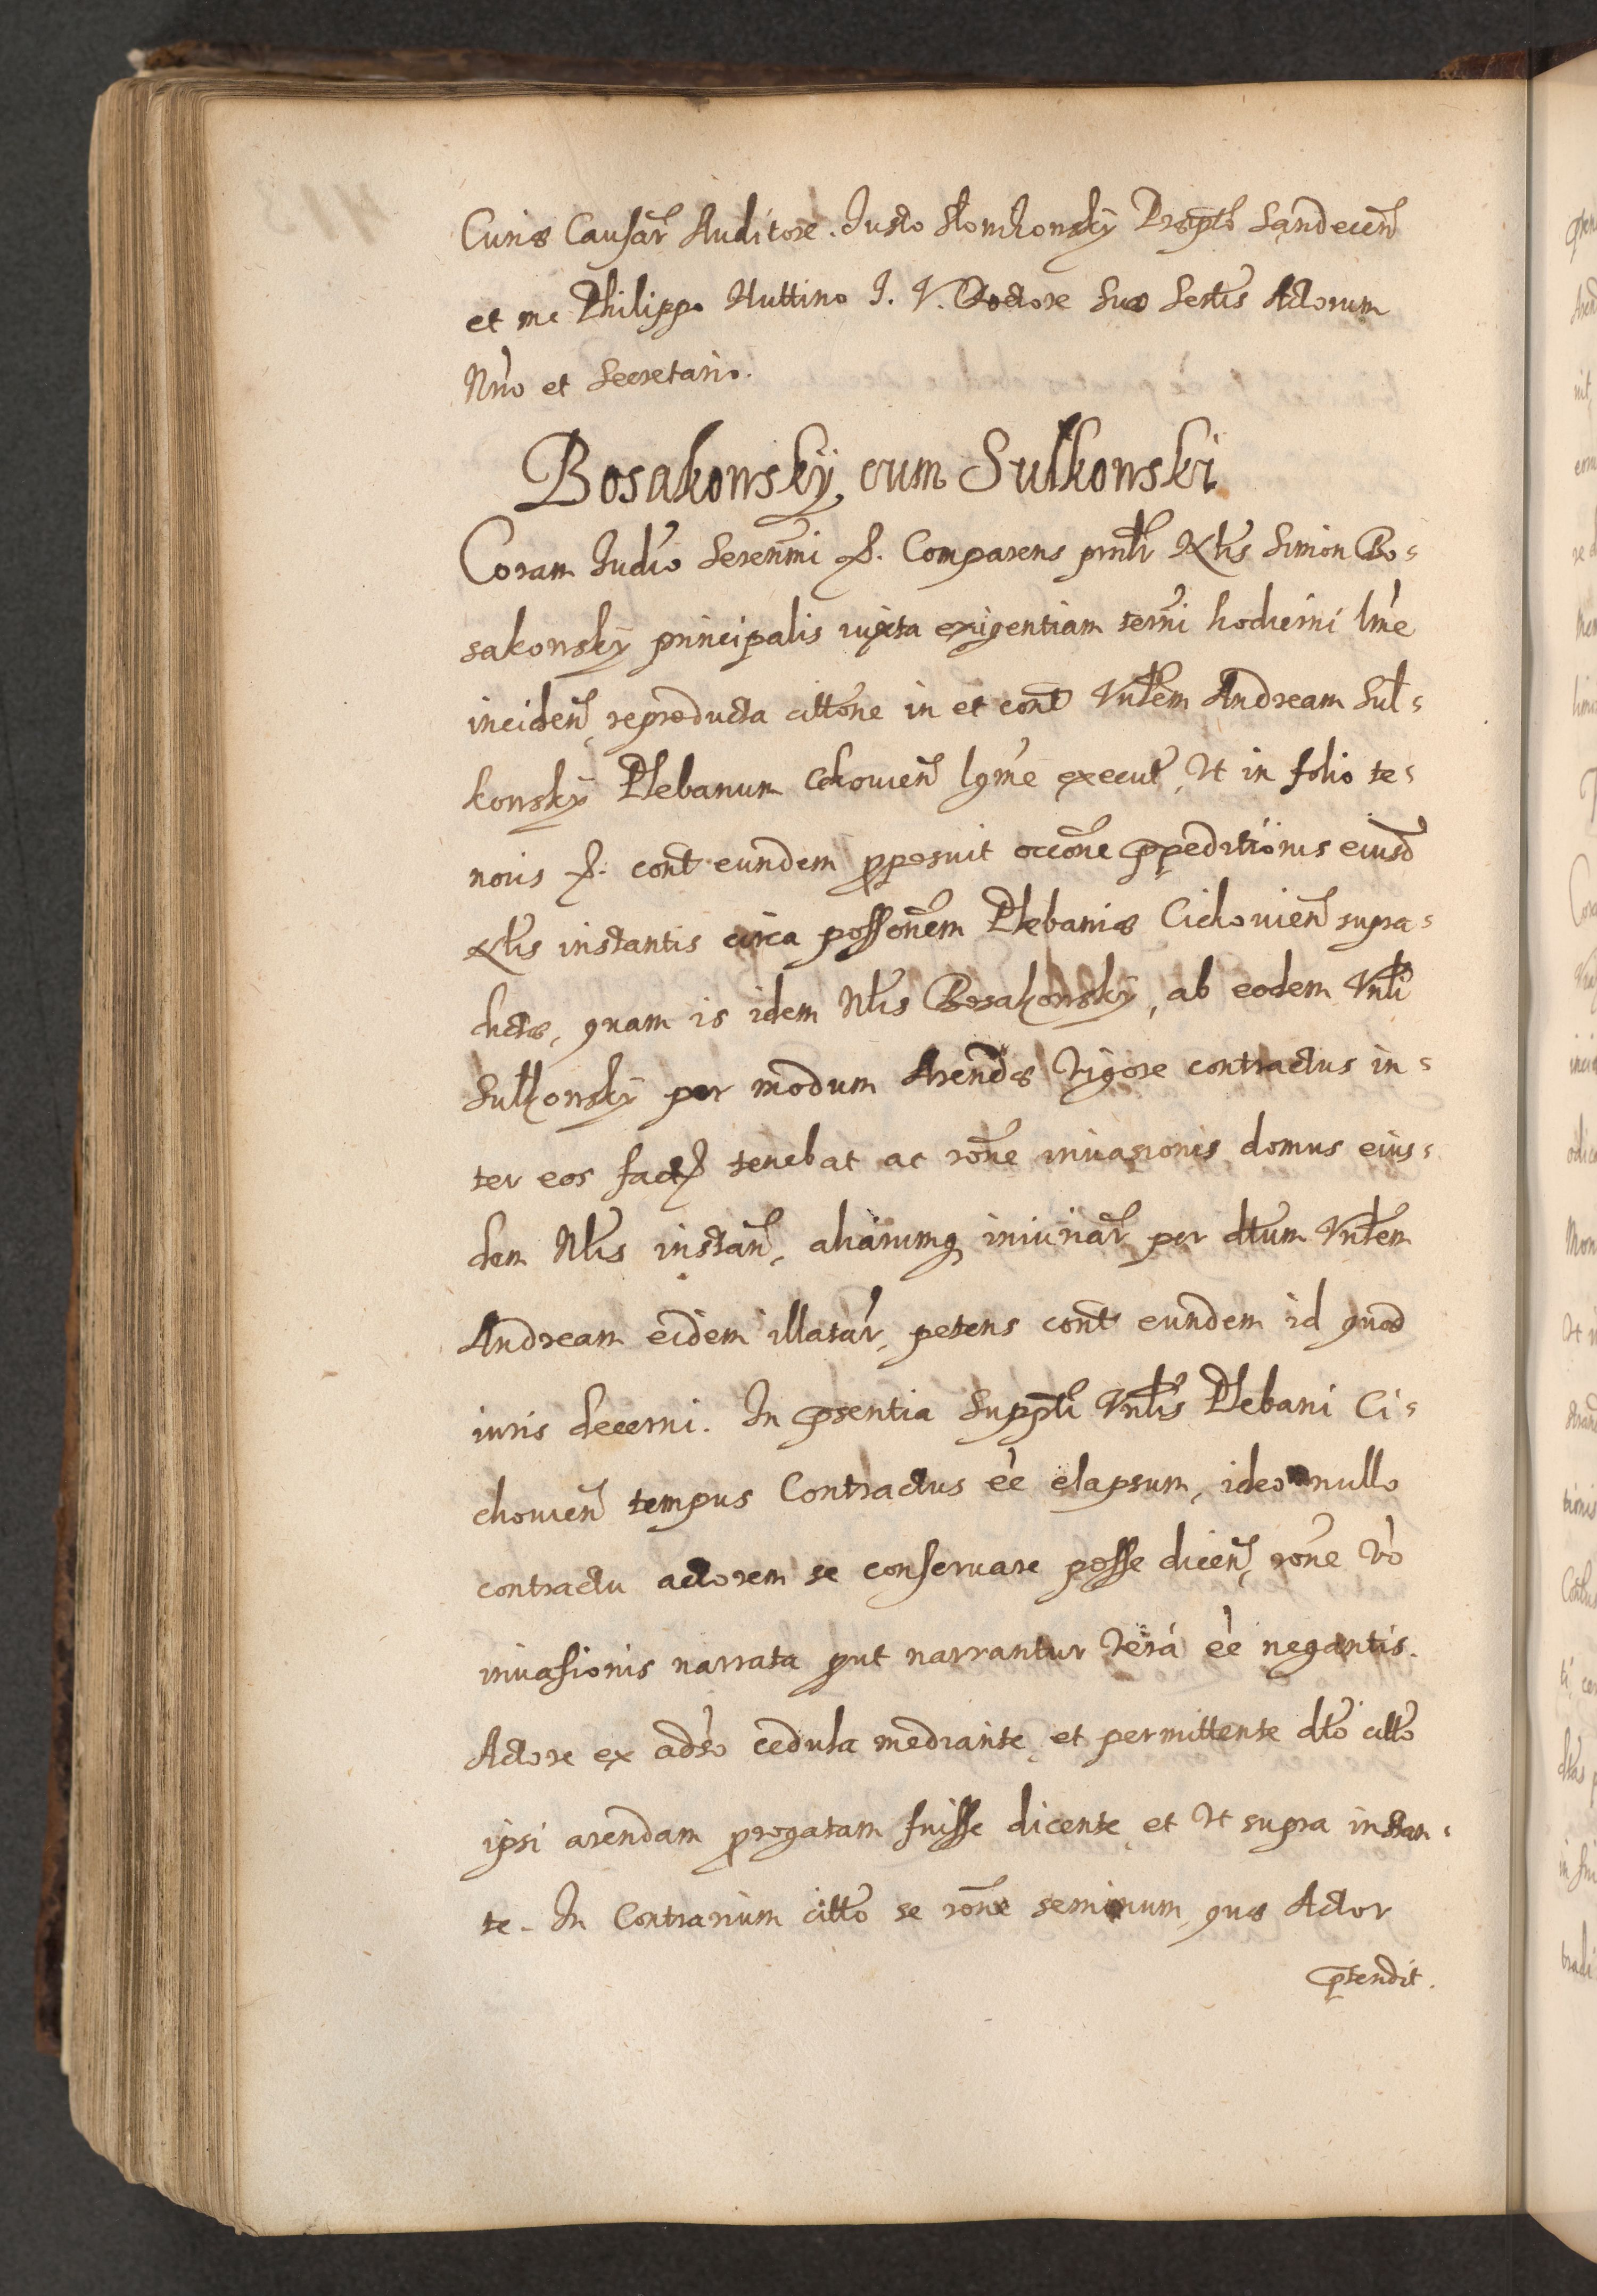 Curiæ Causar̃ Auditore. Justo Słomkowsky Præpto Sandecen̄
et me Philippo Huttino J. V. Doctore Suæ Sertis Actorum
Nrio et Secretario.
Bosakowskÿ cum Sułkowski
Coram Judio Serenmi &. Comparens prntr Nłis Simon Bo=
sakowskÿ principalis iuxta exigentiam termi hodierni lme
inciden̄, reproducta cittone in et cont Vnłem Andream Suł=
kowskÿ Plebanum Cichouien̄ lgme execut, Vt in folio te=
noris &. cont eundem proposuit occōne præpeditionis eiusd
Nłis instantis circa possonem Plebaniæ Cichouien̄ supra=
dictæ, quam is idem Nłis Bosakowskÿ, ab eodem Vnłi
Sułkowskÿ per modum Arendæ Vigore contractus in=
ter eos fact tenebat ac rōne inuasionis domus eius=
dem Nłis instan̄, aliarumq iniuriar̃ per dtum Vnłem
Andream eidem illatar̃, petens cont eundem id quod
iuris decerni. In præsentia Suppti Vnłis Plebani Ci=
chouien̄ tempus Contractus ee elapsum, ideo nullo
contractu actorem se conseruare posse dicen̄, rōne Vo
inuasionis narrata prout narrantur Vera ee negantis.
Actore ex adso cedula mediante, et permittente dto citto
ipsi arendam prorogatam fuisse dicente et Vt supra instan=
te. In Contrarium citto se rōne seminum, quæ Actor
prætendit.
413